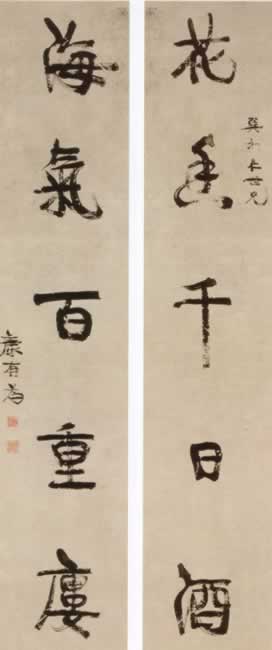 世兄
花香千日酒
海氣百重廔
康有為